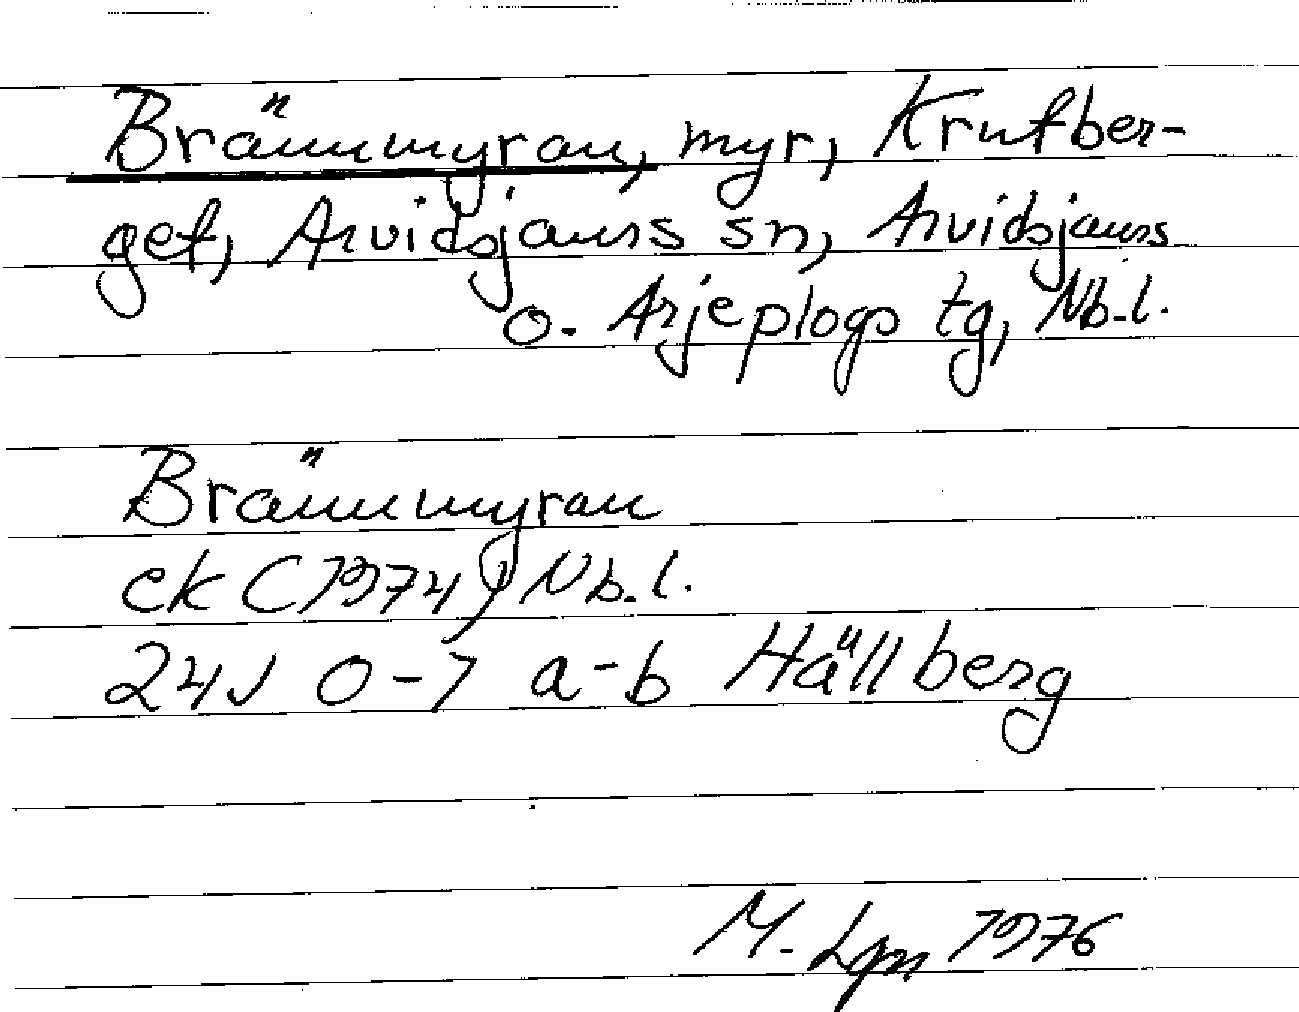 Brännmyran, myr, Krutber-
get, Arvidsjaurs sn, Arvidsjaurs
o. Arjeplogs tg, Nb.l.
Brännmyran
ek (1974) Nb.l.
24J 0-1 a-b Hällberg
M. Lgn 1976